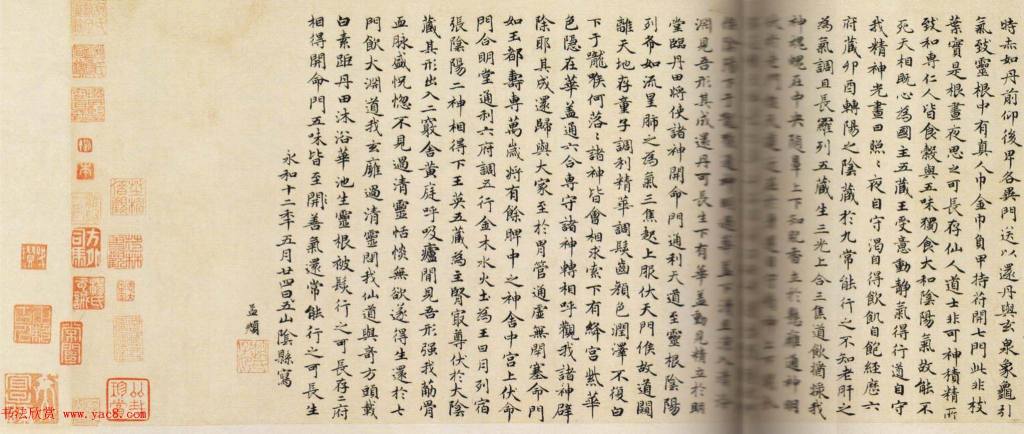 時亦如丹前仰後卑各異門送以還丹與玄泉象龜引
氣致靈根中有真人巾金巾負甲持符開七門此非枝
葉實是根晝夜思之可長存仙人道士非可神積精所
致和專仁人皆食穀與五味獨食大和陰陽氣故能不
死天相既心為國主五藏王受意動靜氣得行道自守
我精神光晝日照〻夜自守渴自得飲飢自飽經歷六
府藏卯酉轉陽之陰藏於九常能行之不知老肝之
為氣調且長羅列五藏生三光上合三焦道飲我
神魂魄在中央隨鼻上下知肥香立於懸雍通神明
淵見吾形其成還丹可長生下有華蓋動見精立於明
堂臨丹田將使諸神開命門通利天道至靈根陰陽
列布如流星肺之為氣三焦起上服伏天門候故道闚
離天地存童子調利精華調髮齒顏色潤澤不復白
下于嚨喉何落〻諸神皆會相求索下有絳宮紫華
色隱在華蓋通六合專守諸神轉相呼觀我諸神辟
除耶其成還歸與大家至於胃管通虛無閉塞命門
如玉都壽專萬歲將有餘脾中之神舍中宮上伏命
門合明堂通利六府調五行金木水火土為王日月列宿
張陰陽二神相得下玉英五藏為主腎最尊伏於大陰
藏其形出入二竅舍黃庭呼吸廬間見吾形強我筋骨
血脈盛恍惚不見過清靈恬惔無欲遂得生還於七
門飲大淵道我玄膺過清靈問我仙道與奇方頭載
白素距丹田沐浴華池生靈根被髮行之可長存二府
相得開命門五味皆至開善氣還常能行之可長生
永和十二年五月廿四日五山陰縣寫
孟頫
书法欣赏
www.yac8.com